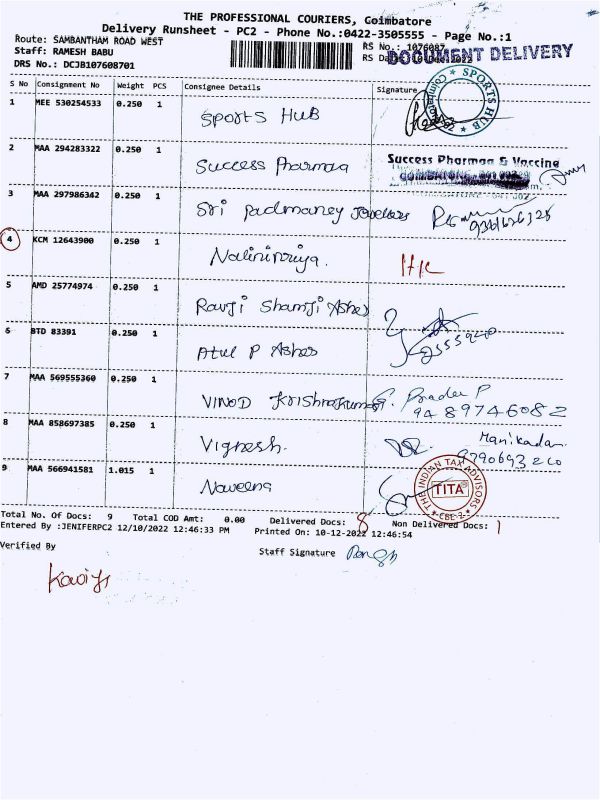 THE PROFESSIONAL COURIERS, Coimbatore
Delivery Runsheet - PC2 - Phone No.:0422-3505555 - Page No.:1
Route: SAMBANTHAM ROAD WEST
RS No.: 1076087
DOCUMENT DELIVERY
Staff: RAMESH BABU
DRS No.: DCJB107608701
S No Consignment No Weight PCS Consignee Details Signature
SPORTS HUB
Coimbatore
1 MEE 530254533 0.250 1 SPORTS HUB
2 MAA 294283322 0.250 1 Success Pharmaa
Success Pharmaa & Vaccine
3 MAA 297986342 0.250 1 Sri Padmaney Jewellers
4 KCM 12643900 0.250 1
5 AMD 25774974 0.250 1 Ravji Shamji Asher
6 BTD 83391 0.250 1 Atul P Asher
7 MAA 569555360 0.250 1 VINOD Krishnakumar
9489746082
8 MAA 858697385 0.250 1 Vignesh.
Manikadan
9790693260
9 MAA 566941581 1.015 1 Naveena
THE INDIAN TAX ADVISORS
TITA
CBE-2
Total No. Of Docs: 9 Total COD Amt: 0.00 Delivered Docs: 8 Non Delivered Docs: 1
Entered By :JENIFERPC2 12/10/2022 12:46:33 PM Printed On: 10-12-2022 12:46:54
Verified By
Staff Signature